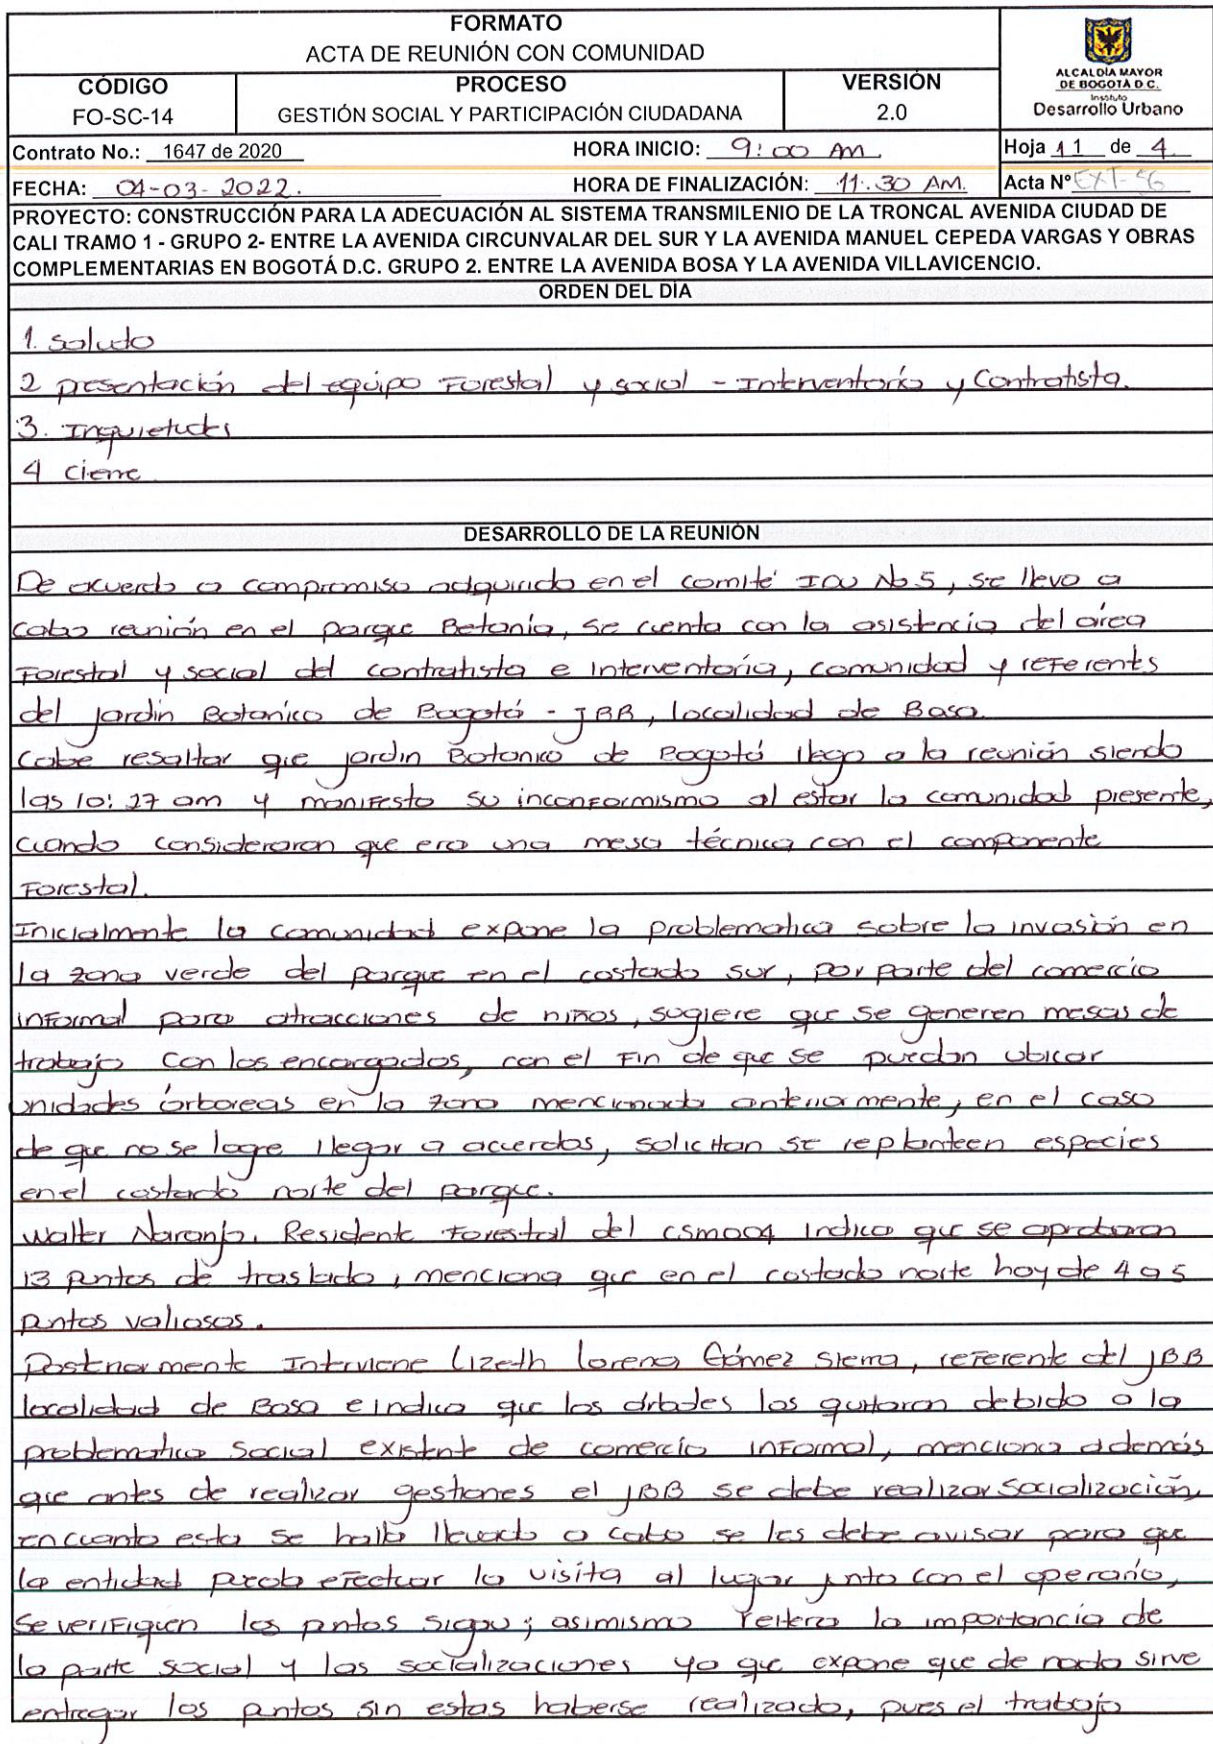 FORMATO
ACTA DE REUNIÓN CON COMUNIDAD
CÓDIGO
FO-SC-14
PROCESO
GESTIÓN SOCIAL Y PARTICIPACIÓN CIUDADANA
VERSIÓN
2.0
ALCALDÍA MAYOR
DE BOGOTÁ D.C.
Instituto
Desarrollo Urbano
Contrato No.: 1647 de 2020 HORA INICIO: 9:00 AM Hoja 11 de 4
FECHA: 04-03-2022. HORA DE FINALIZACIÓN: 11:30 AM. Acta Nº EXT-56
PROYECTO: CONSTRUCCIÓN PARA LA ADECUACIÓN AL SISTEMA TRANSMILENIO DE LA TRONCAL AVENIDA CIUDAD DE
CALI TRAMO 1 - GRUPO 2- ENTRE LA AVENIDA CIRCUNVALAR DEL SUR Y LA AVENIDA MANUEL CEPEDA VARGAS Y OBRAS
COMPLEMENTARIAS EN BOGOTÁ D.C. GRUPO 2. ENTRE LA AVENIDA BOSA Y LA AVENIDA VILLAVICENCIO.
ORDEN DEL DÍA
1. Saludo
2 presentación del equipo Forestal y social - Interventoría y Contratista.
3. Inquietudes
4 cierre
DESARROLLO DE LA REUNIÓN
De acuerdo a compromiso adquirido en el comité IDU No 5, se llevo a
cabo reunión en el parque Betania, se cuenta con la asistencia del área
Forestal y social del contratista e interventoría, comunidad y referents
del jardin Botanico de Bogotá - JBB, localidad de Bosa.
Cabe resaltar que jardin Botanico de Bogotá llego a la reunión siendo
las 10:27 am y manifesto su inconformismo al estar la comunidad presente,
cuando consideraron que era una mesa técnica con el componente
Forestal.
Inicialmente la comunidad expone la problematica sobre la invasión en
la zona verde del parque en el costado sur, por parte del comercio
informal para atracciones de niños, sugiere que se generen mesas de
trabajo con los encargados, con el fin de que se puedan ubicar
unidades árboreas en la zona mencionada anteriormente, en el caso
de que no se logre llegar a acuerdos, solicitan se replanteen especies
en el costado norte del parque.
Walter Naranjo, Residente Forestal del CSM004 indica que se aprobaron
13 puntos de traslado, menciona que en el costado norte hay de 4 a 5
puntos valiosos.
Posteriormente Interviene Lizeth Lorena Gómez Sierra, referente del JBB
localidad de Bosa e indica que los árboles los quitaron debido a la
problematica Social existente de comercio informal, menciona además
que antes de realizar gestiones el JBB se debe realizar Socialización,
en cuanto esta se halla llevado a cabo se les debe avisar para que
la entidad pueda efectuar la visita al lugar junto con el operario,
se verifiquen los puntos sigau; asimismo reitera la importancia de
la parte social y las socializaciones ya que expone que de nada sirve
entregar los puntos sin estas haberse realizado, pues el trabajo